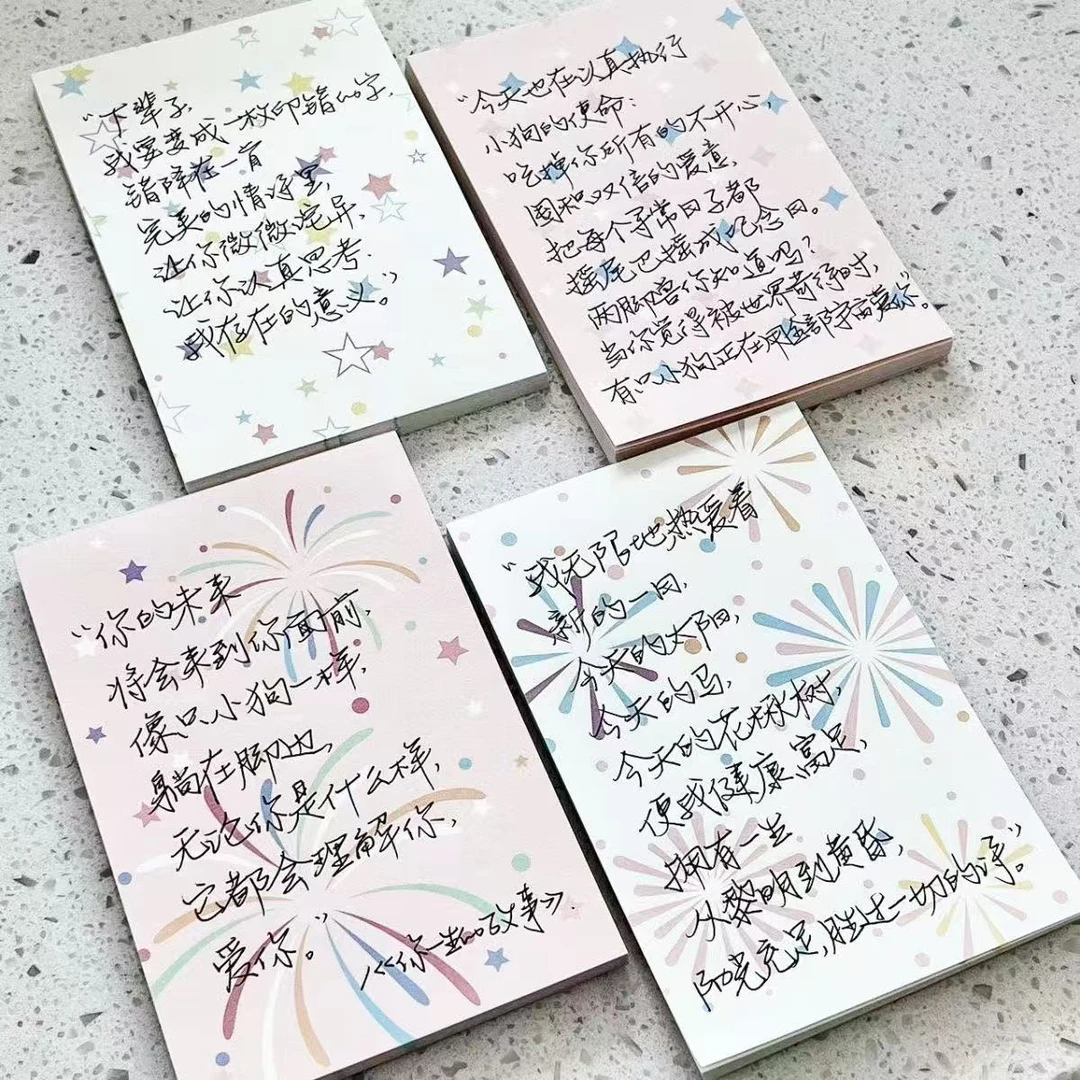 “下辈子,
我要变成一枚印错的字,
错降在一首
完美的情诗里,
让你微微诧异,
让你认真思考.
我存在的意义。”
“今天也在认真执行
小狗的使命:
吃掉你所有的不开心,
围和双倍的爱意,
把每个寻常日子都
摇尾巴摇成纪念日。
两脚兽你知道吗?
当你觉得被世界苛待时,
有只小狗正在用全部宇宙爱你。”
“你的未来
将会来到你面前,
像只小狗一样,
躺在脚边,
无论你是什么样,
它都会理解你,
爱你。”
《你一生的故事》.
“我无限地热爱着
新的一日,
今天的太阳,
今天的马,
今天的花楸树,
使我健康 富足,
拥有一生
从黎明到黄昏,
阳光充足,胜过一切的诗。”